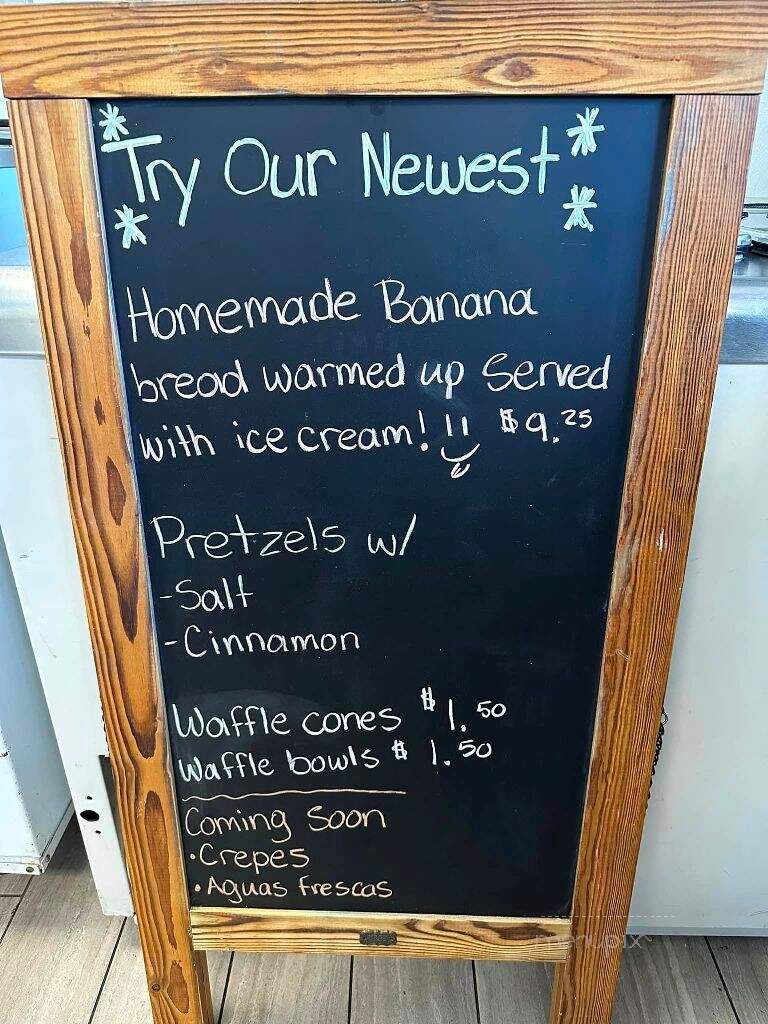 Try Our Newest
Homemade Banana
bread warmed up Served
with ice cream! !! $9.25
Pretzels w/
-Salt
-Cinnamon
Waffle cones $1.50
Waffle bowls $1.50
Coming Soon
•Crepes
•Aguas frescas
menupix